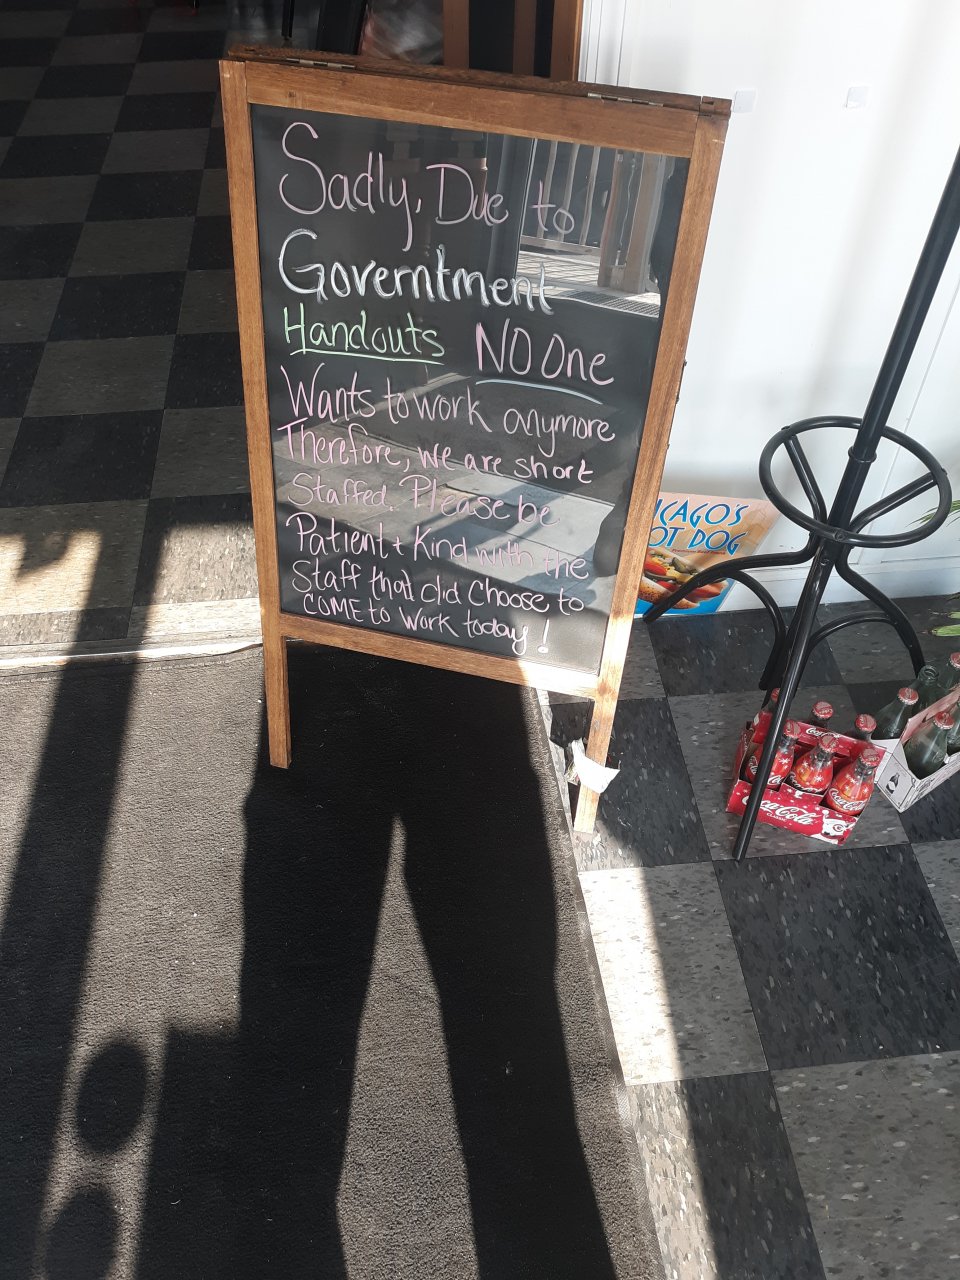 Sadly, Due to
Governtment
Handouts NO One
Wants to work anymore
Therefore, we are short
Staffed. Please be
Patient + Kind with the
Staff that did Choose to
COME to Work today!
ICAGO'S
OT DOG
Coca-Cola
Coca-Cola
CLASSIC